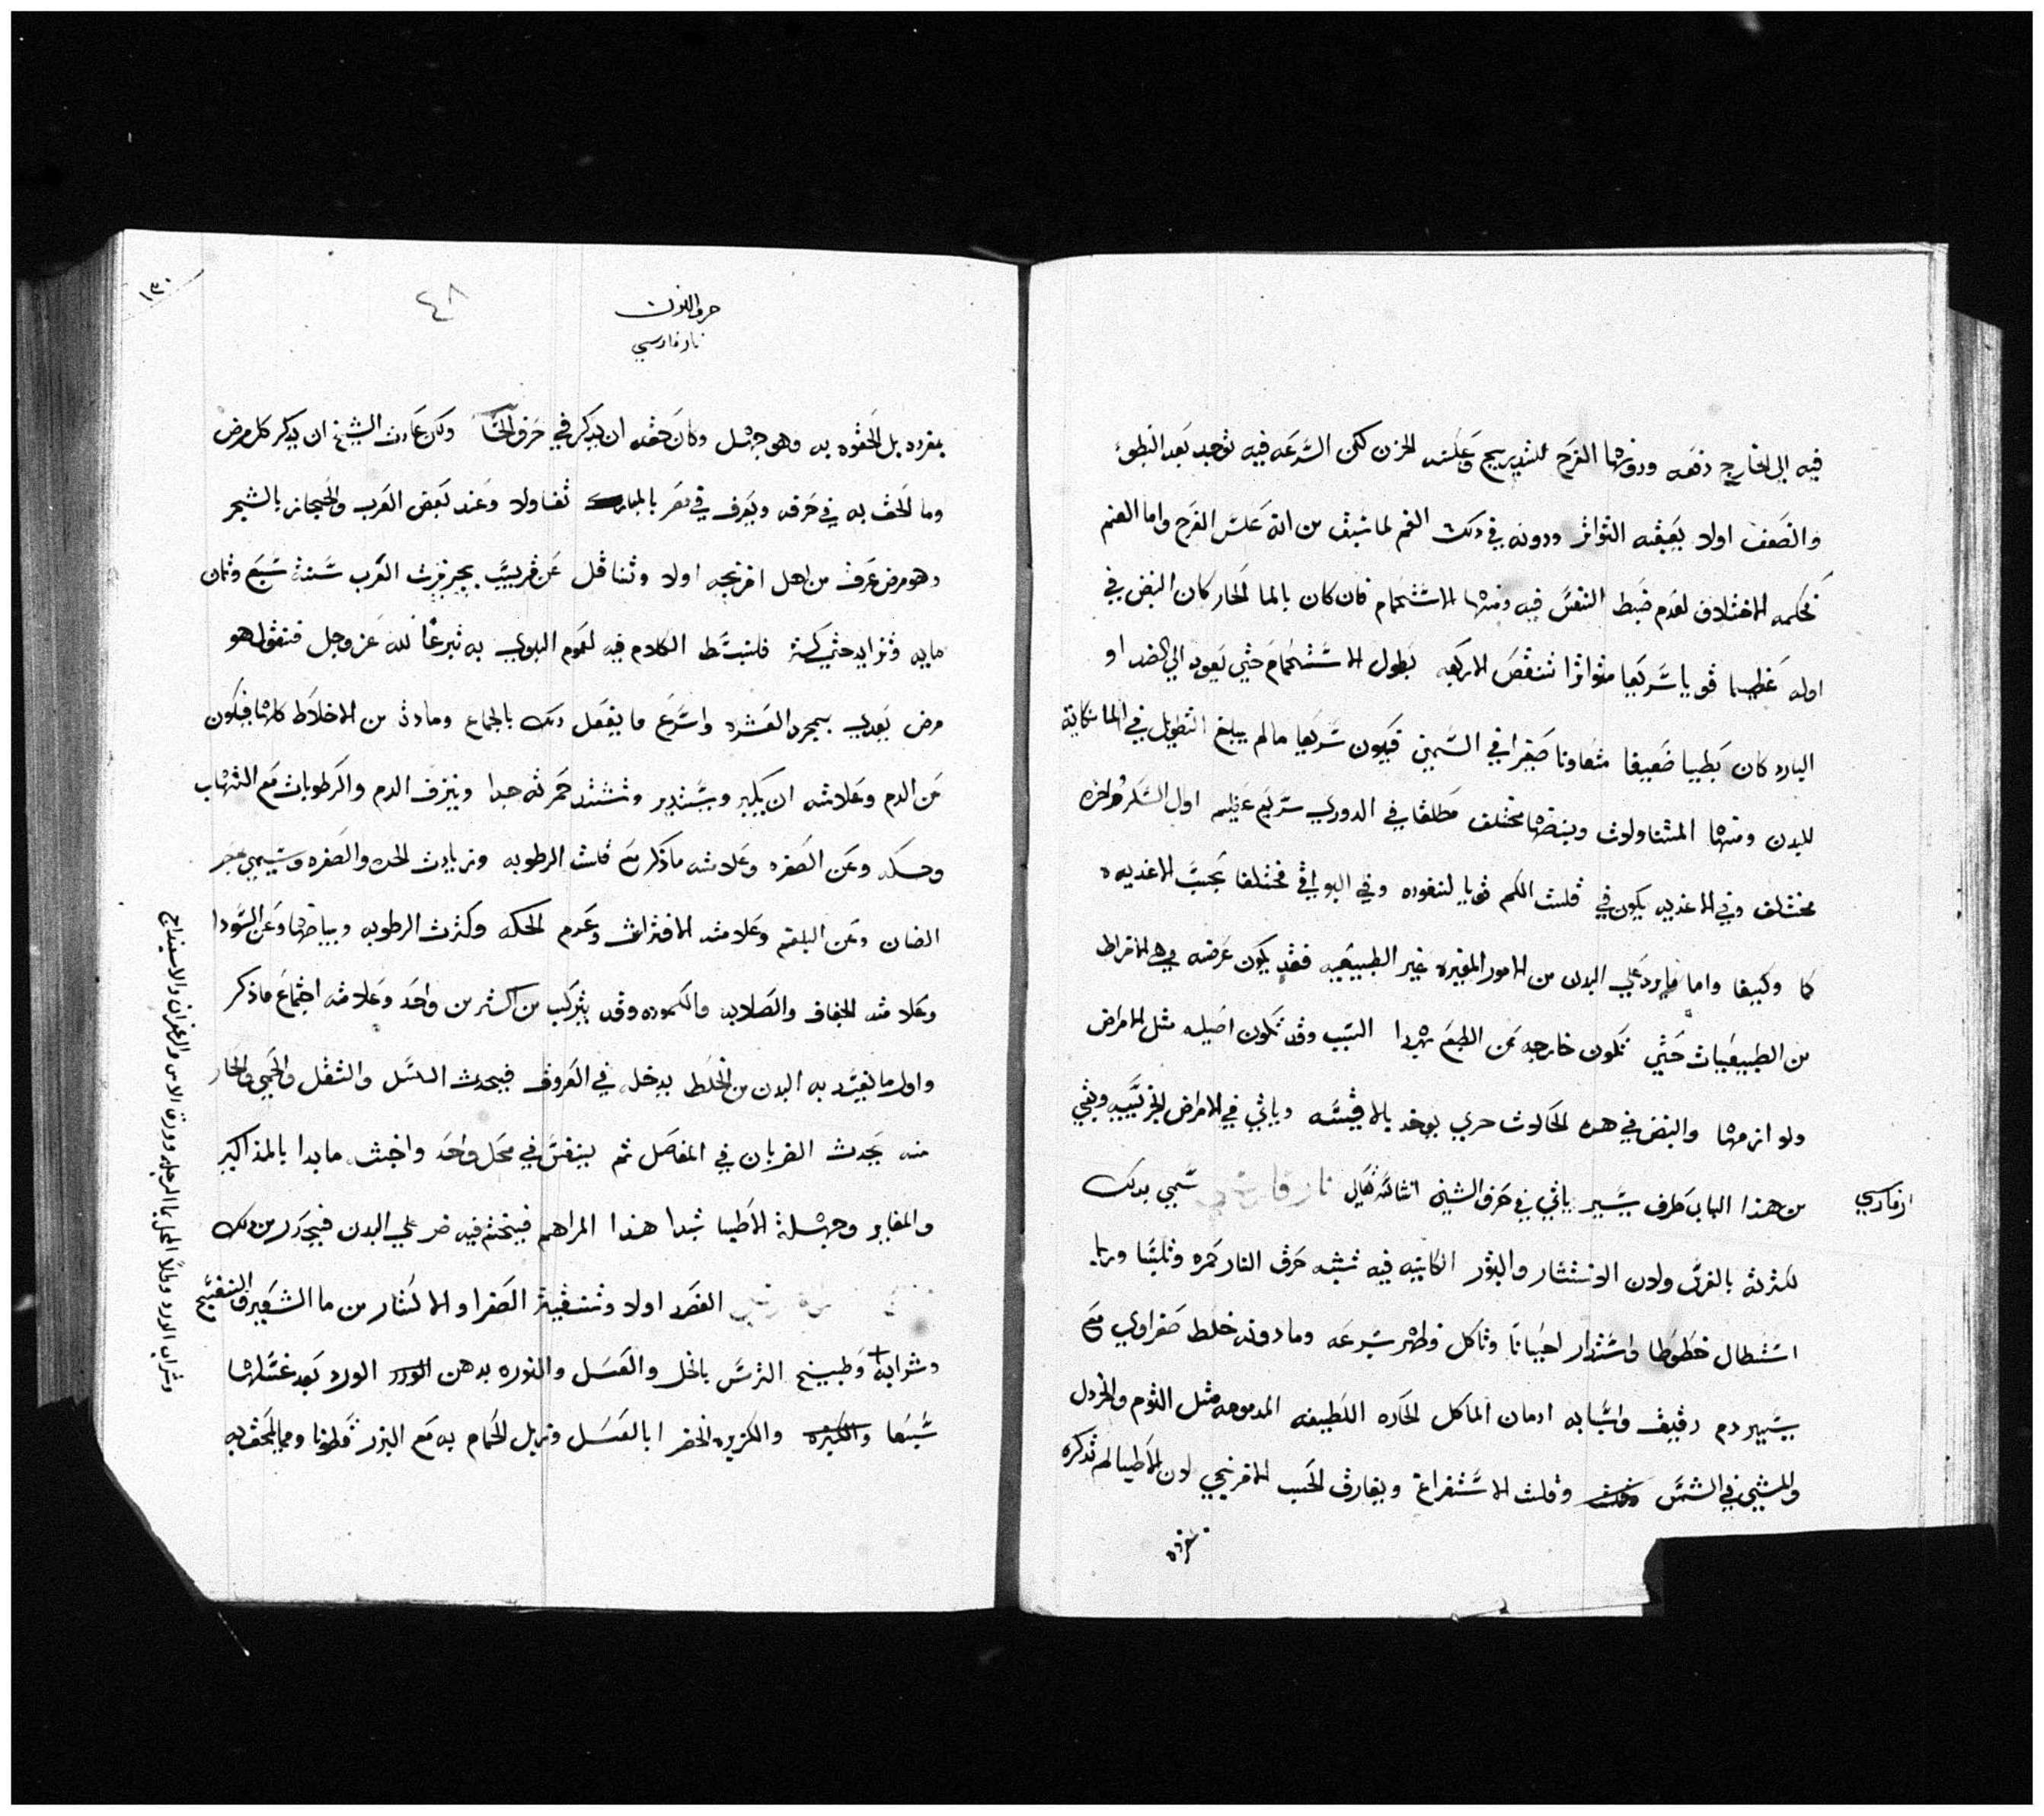 فيه الى الخارج دفعه ودونهما الفرح للتدريج وعكسه الحزن لكن السرعه فيه توجد بعد البطوء
والضعف اولا بعقبه التواتر ودونه في ذلك الغم لما سبق من انه عكس الفرح واما الغم
فحكمه الاختلاف لعدم ضبط النفس فيه ومنها الاستحمام فان كان بالما الحار كان النبض في
اوله عظيما قويا سريعا متواترا تنقص الاربعه بطول الاستحمام حتي يعود الي الضد او
البارد كان بطييا ضعيفا متفاوتا صغيرا في السمين فيكون سريعا مالم يبلغ التطويل في الما نكاية
للبدن ومنها المتناولات ونبضها مختلف مطلقا في الدوري سريع عظيم اول السكر واخره
مختلف وفي الاغذيه يكون في قلت الكم قويا لنفوده وفي البواقي مختلفا بحسب الاغذيه
كما وكيفا واما ما يرد علي البدن من الامور المغيره غير الطبيعيه فقد يكون عرضه في الافراط
من الطبيعيات حتي تكون خارجه عن الطبع بهدا السبب وقد تكون اصليه مثل الامراض
ولوازمها والنبض في هده الحالات حري يوخد بالاقيسه وياتي في الامراض الجزييه وبقي
من هذا الباب طرف يسير ياتي في حرف الشين انشا الله تعالي نار فارسي سمي بدلك
ار فارسي
لكثرته بالفرس ولان الانتشار والبثور الكاينه فيه تشبه حرق النار حمره وتلهبا وربما
استطال خطوطا واستدار احيانا وتاكل وظهر بسرعه ومادونه خلط صفراوي مع
يسير دم رقيق واسبابه ادمان الماكل الحاره اللطيفه مثل الثوم والخردل
والمشي في الشمس وقلت الاستفراغ ويفارق الحب الافرنجي لان الاطبا لم تذكره
حرف النون
نار فارسي
٤٨
١٣٠
بمفرده بل الحقوه به وهو جهل وكان حقه ان يذكر في حرف الحا ولكن عادت الشيخ ان يدكر كل مرض
وما الحق به في حرفه ويعرف في مصر بالمبارك تفاولا وعند بعض العرب والحجاز بالشجر
وهو مرض عرف من اهل افرنجه اولا وتناقل عن قريب بجزيرت العرب سنة سبع وثمان
مايه وتزايد حتي كثر فلنبسط الكلام فيه لعموم البلوي به تبرعا لله عز وجل فنقول هو
مرض يعدي بمجرد العشره واسرع ما يفعل دلك بالجماع ومادته من الاخلاط كلها فيكون
عن الدم وعلامته ان يكبر ويستدير وتشتد حمرته جدا وينزف الدم والرطوبات مع التهاب
وحكه وعن الصفره وعلامته ما ذكر مع قلت الرطوبه وزيادت الحده والصفره ويسمي
الضان وعن البلغم وعلامته الافتراش وعدم الحكه وكثرت الرطوبه وبياضها وعن السودا
وعلامته الجفاف والصلابه والكموده وقد يتركب من اكثر من واحد وعلامته اجتماع ما ذكر
واول ما يفسد به البدن من الخلط يدخل في العروق فيحدث الكسل والثقل والحمي والحار
منه يحدث الضربان في المفاصل ثم ينفتق في محل واحد واخبث ما بدا بالمذاكير
والمغابن وجهلة الاطبا تبدا هذا المراهم فيختم فيه ضر علي البدن فيحذر من دلك
الفصد اولا وتنقية الصفرا والاكثار من ما الشعير والتنقيع
وشرابه وطبيخ الترمس بالخل والعسل والنوره بدهن الورد بعد غسلها
سبعا والكزبره الخضرا بالعسل وزبل الحمام به مع البزر قطونا ومما يلحق به
وشراب الورد وطلا المحل بما الرجله وورق الاس والزعفران والاسفيداج